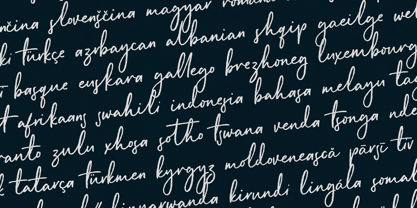 slovenščina magyar
türkçe azərbaycan albanian shqip gaeilge
basque euskara gallego brezhoneg luxembourg
afrikaans swahili indonesia bahasa melayu
zulu xhosa sotho tswana venda tsonga
tatarça türkmen kyrgyz moldovenească pārsī
kirundi lingála